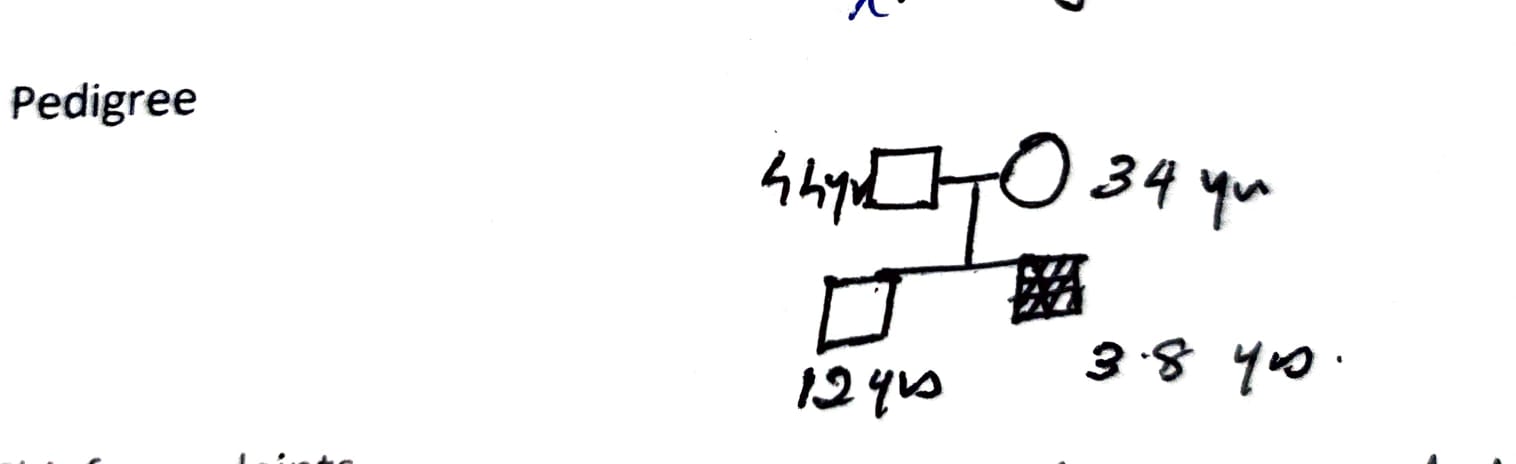 Pedigree
44yr 34 yr
12 yrs 3.8 yrs.